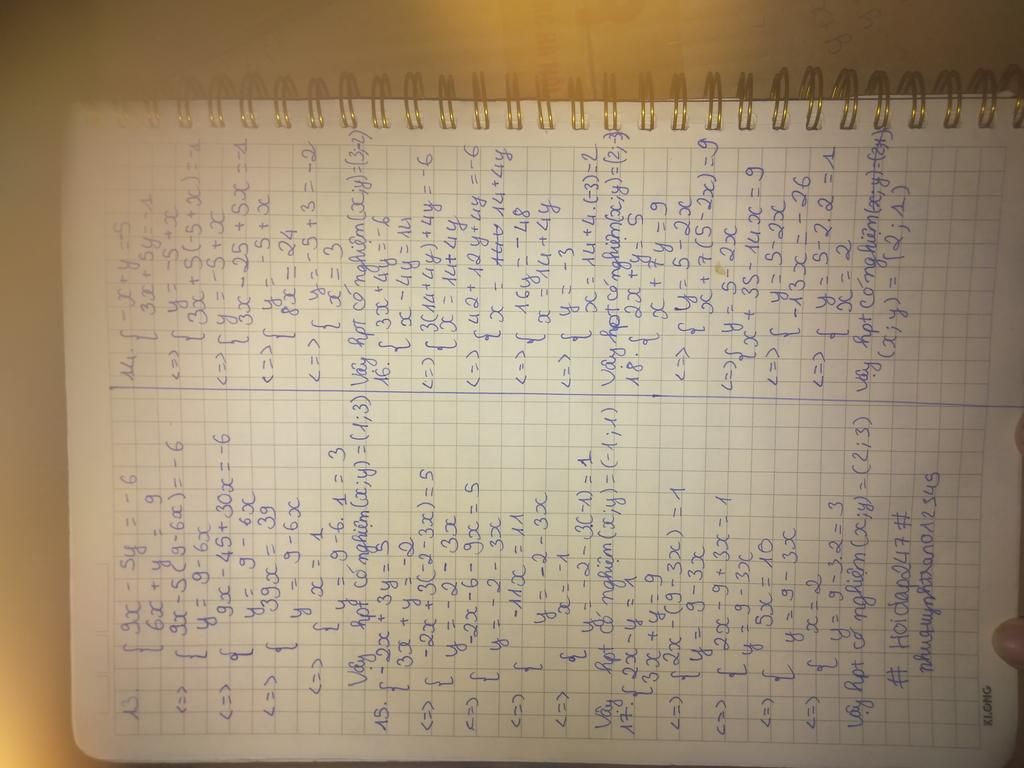 13. { 9x - 5y = -6
6x + y = 9
<=> { 9x - 5(9-6x) = -6
y = 9 - 6x
<=> { 9x - 45 + 30x = -6
y = 9 - 6x
<=> { 39x = 39
y = 9 - 6x
<=> { x = 1
y = 9 - 6.1 = 3
Vậy hpt có nghiệm (x;y) = (1;3)
15. { -2x + 3y = 5
3x + y = -2
<=> { -2x + 3(-2-3x) = 5
y = -2 - 3x
<=> { -2x - 6 - 9x = 5
y = -2 - 3x
<=> { -11x = 11
y = -2 - 3x
<=> { x = -1
y = -2 - 3(-1) = 1
Vậy hpt có nghiệm (x;y) = (-1;1)
17. { 2x - y = 1
3x + y = 9
<=> { 2x - (9-3x) = 1
y = 9 - 3x
<=> { 2x - 9 + 3x = 1
y = 9 - 3x
<=> { 5x = 10
y = 9 - 3x
<=> { x = 2
y = 9 - 3.2 = 3
Vậy hpt có nghiệm (x;y) = (2;3)
# Hoidap247 #
14. { -x + y = -5
3x + 5y = -1
<=> { y = -5 + x
3x + 5(-5+x) = -1
<=> { y = -5 + x
3x - 25 + 5x = -1
<=> { y = -5 + x
8x = 24
<=> { y = -5 + 3 = -2
x = 3
Vậy hpt có nghiệm (x;y) = (3;-2)
16. { 3x + 4y = -6
x - 4y = 14
<=> { 3(14+4y) + 4y = -6
x = 14 + 4y
<=> { 42 + 12y + 4y = -6
x = 14 + 4y
<=> { 16y = -48
x = 14 + 4y
<=> { y = -3
x = 14 + 4.(-3) = 2
Vậy hpt có nghiệm (x;y) = (2;-3)
18. { 2x + y = 5
x + 7y = 9
<=> { y = 5 - 2x
x + 7(5-2x) = 9
<=> { y = 5 - 2x
x + 35 - 14x = 9
<=> { y = 5 - 2x
-13x = -26
<=> { y = 5 - 2.2 = 1
x = 2
Vậy hpt có nghiệm
(x;y) = (2;1)
KLONG